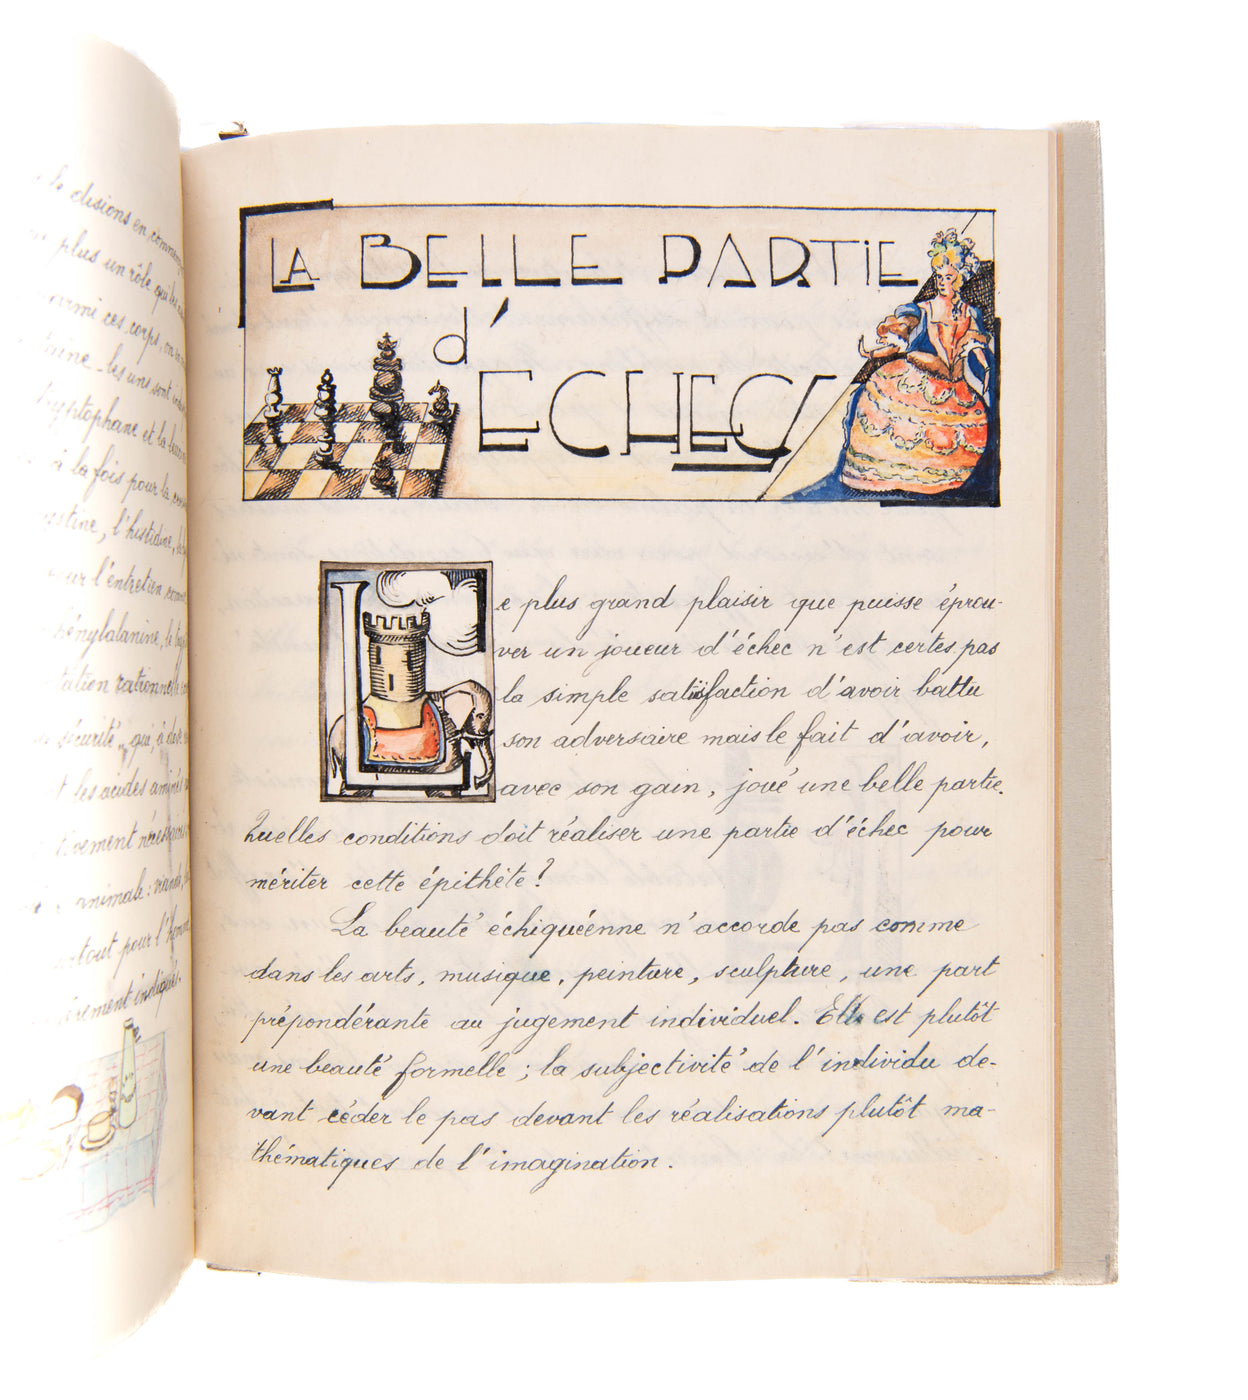 disions en
plus un rôle
parmi ces corps, on
les uns sont
tryptophane et la
à la fois pour la
l'histidine,
pour l'entretien
phénylalanine, le
ration rationnelle
sécurité, qui, à
les acides aminés
animale : viande,
tout pour l'homme
indiqués.
LA BELLE PARTIE
d'
ECHECS
Le plus grand plaisir que puisse éprou-
ver un joueur d'échec n'est certes pas
la simple satisfaction d'avoir battu
son adversaire mais le fait d'avoir,
avec son gain, joué une belle partie.
Quelles conditions doit réaliser une partie d'échec pour
mériter cette épithète ?
La beauté échiquéenne n'accorde pas comme
dans les arts, musique, peinture, sculpture, une part
prépondérante au jugement individuel. Elle est plutôt
une beauté formelle ; la subjectivité de l'individu de-
vant céder le pas devant les réalisations plutôt ma-
thématiques de l'imagination.